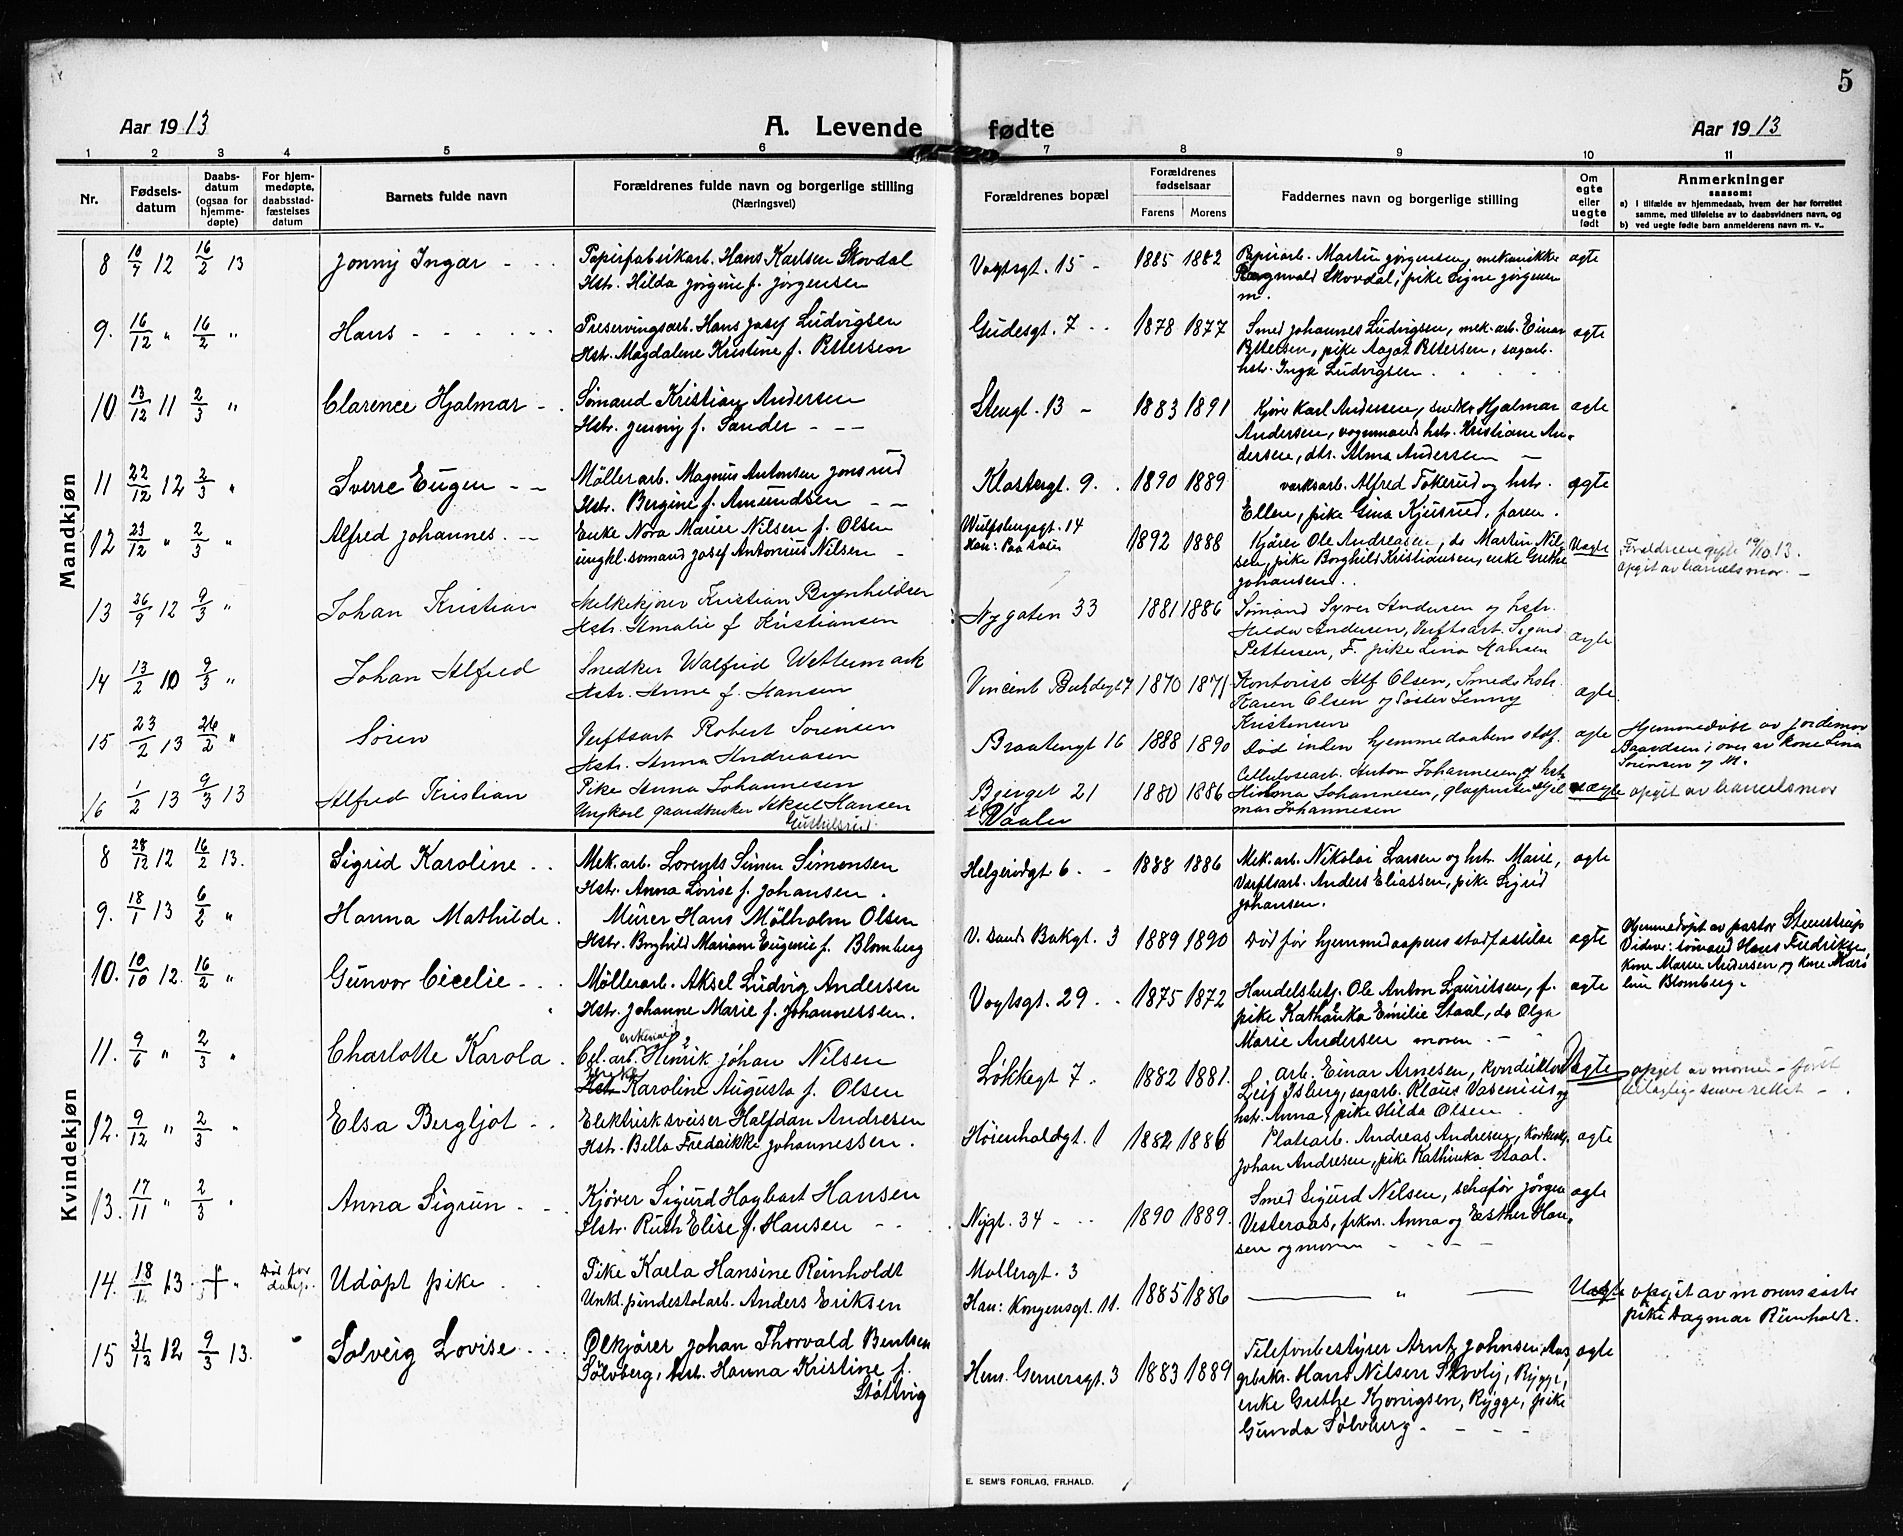 5
Aar 1913
A. Levende fødte
Aar 1913
1 2 3 4 5 6 7 8 9 10 11
Nr.
Fødsels-
datum
Daabs-
datum
(ogsaa for
hjemme-
døpte)
For hjem-
medøpte,
daabsstad-
fæstelses
datum
Barnets fulde navn
Forældrenes fulde navn og borgerlige stilling
(Næringsvei)
Forældrenes bopæl
Forældrenes
fødselsaar
Farens Morens
Faddernes navn og borgerlige stilling
Om
egte
eller
uegte
født
Anmerkninger
saasom:
a) i tilfælde av hjemmedaab, hvem der har forrettet
samme, med tilføielse av to daabsvidners navn, og
b) ved uegte fødte barn anmelderens navn m. v..
Mandkjøn
8 10/7 12 16/2 13 Jonny Ingar - - Papirfabrikarb. Hans Karlsen Skovdal
Hstr. Hilda Jørgine f. Jørgensen
Vogtsgt. 15 - 1885 1882 Papirarb. Martin Jørgensen, mekanikke
Ragnvald Skovdal, pike Signe Jørgensen
m. ægte
9. 16/12 " 16/2 " Hans - - - - Preservingsarb. Hans Josef Ludvigsen
Hstr. Magdalene Kristine f. Pettersen
Gudesgt. 7 - - 1878 1877 Smed Johannes Ludvigsen, mek. arb. Einar
Pettersen, pike Aagot Pettersen, sagarb.
hstr. Inga Ludvigsen. ægte
10 13/12 11 2/3 " Clarence Hjalmar - Sømand Kristian Andersen
Hstr. Jenny f. Sander - - -
Stengt. 13 - 1883 1891 Kjører Karl Andersen, snedker Hjalmar
Andersen, vognmands hstr. Kristiane An-
dersen, dtr. Alma Andersen - ægte
11 22/12 12 2/3 " Sverre Eugen - - Møllerarb. Magnus Antonsen Jonsrud
Hstr. Bergine f. Amundsen - -
Klostergt. 9. 1890 1889 verksarb. Alfred Tokerud og hstr.
Ellen, pike Gina Kjusrud, faren. ægte
12 23/12 " 2/3 " Alfred Johannes. - - Enke Nora Marie Nilsen f. Olsen
ungkl. sømand Josef Antonius Nilsen -
Wulfsbergsgt. 14
Han: Paa søen 1892 1888 Kjører Ole Andreasen, do Martin Nil-
sen, pike Borghild Kristiansen, enke Grethe
Johansen. Uegte Forældrene gifte 19/10 13.
opgit av barnets mor. -
13 26/9 12 9/3 " Johan Kristian Melkekjører Kristian Brynhildsen
Hstr. Amalie f Kristiansen
Nygaten 33 1881 1886 Sømand Syver Andersen og hstr.
Hilda Andersen, Verftsarb. Sigurd
Pettersen, F. pike Lina Hansen ægte
14 13/2 10 9/3 " Johan Alfred Snedker Walfrid Wettermark
Hstr. Anne f. Hansen
Vincent Buddegt 7 1870 1871 Kontorist Alf Olsen, Smeds hstr.
Karen Olsen og Søster Jenny
Kristensen ægte
15 23/2 13 26/2 " Søren Verftsarb Robert Sørensen
Hstr. Anna Andreasen
Braatengt 16 1888 1890 Død inden hjemmedaabens stadf. ægte Hjemmedøbt av jordemor
Baardsen; over av kone Lina
Sørensen og M.
16 1/2 13 9/3 13 Alfred Kristian Pike Anna Johannesen
Ungkarl gaardbruker Aksel Hansen
Guthulsrud.
Bjerget 21
i Vaaler 1880 1886 Cellulosearb. Anton Johannesen og hstr.
Hilma Johannesen, glaspuster Hjal
mar Johannesen uægte opgit av barnets mor
Kvindekjøn
8 28/12 12 16/2 13. Sigrid Karoline. . . Mek. arb. Lorents Simen Simonsen
Hstr. Anna Lovise f. Johansen.
Helgerødgt 6. - 1888 1886 Mek. arb. Nikolai Larsen og hstr. Marie,
Verftsarb. Anders Eliassen, pike Sigrid
Johansen. ægte
9. 18/1 13 6/2 " Hanna Mathilde. Murer Hans Mølholm Olsen
Hstr. Borghild Mariane Eugenie f. Blomberg
V. Sands Bakgt. 3 1889 1890 Død før hjemmedaapens stadfæstelse ægte Hjemmedøpt av pastor Stenstrup
Vidne: sømand Hans Fredriksen
Kone Marie Andersen og Kone Karo
line Blomberg.
10. 10/10 12. 16/2 " Gunvor Cicelie - . . Møllerarb. Aksel Ludvig Andersen
Hstr. Johanne Marie f. Johannessen.
Vogtsgt. 29 . . 1875 1872 Handelsbetj. Ole Anton Lauritsen, f.
pike Kathinka Emilie Staal, do Olga
Marie Andersen moren - ægte
11. 9/6 " 2/3 " Charlotte Karola . enkemand
Cel. arb. Henrik Johan Nilsen
enke
Hstr Karoline Augusta f. Olsen
Løkkegt 7. 1882 1881. arb. Einar Arnesen, konduktør
Leif Isberg, sagarb. Klaus Vasenius og
hstr. Anna, pike Hilda Olsen. Uægte opgit av moren - først
12. 9/12 " 2/3 " Elsa Bergljot - . Elektrisksveiser Halfdan Andresen
Hstr. Bella Fredrikke Johannessen.
Hørenholdgt. 1 1882 1886 Platearb. Andreas Andresen, Korkarb.
Johan Andresen, pike Kathinka Staal. ægte
13. 17/11 " 2/3 " Anna Sigrun - . - Kjører Sigurd Hagbart Hansen
Hstr. Ruth Elise f. Hansen - -
Nygt. 34 - - - 1890 1889. Smed Sigurd Nilsen, schafør Jørgen
Vesteraas, frknr. Anna og Esther Han-
sen og moren - - - ægte
14. 18/1 13 + " Død før
daap. Udøpt pike . . Pike Karla Hansine Reinholdt
Unkl. pindestolarb. Anders Eriksen
Møllergt. 3
Han: Kongensgt. 11. 1885 1886 — " — Uægte opgit av morens søster
pike Dagmar Reinholdt.
15 31/12 12 9/3 13. Solveig Lovise. . . Ølkjører Johan Thorvald Bentsen
Sølvberg, hstr. Hanna Kristine f.
Støttvig
Hem. Gernersgt. 3 1883 1889 Telefonbestyrer Arnt Johnsen, Aas,
grbrkr. Hans Nilsen Skovly, Rygge,
enke Grethe Kjønigsen, Rygge, pike
Gunda Sølvberg - - - - ægte
E. SEM'S FORLAG, FR.HALD.